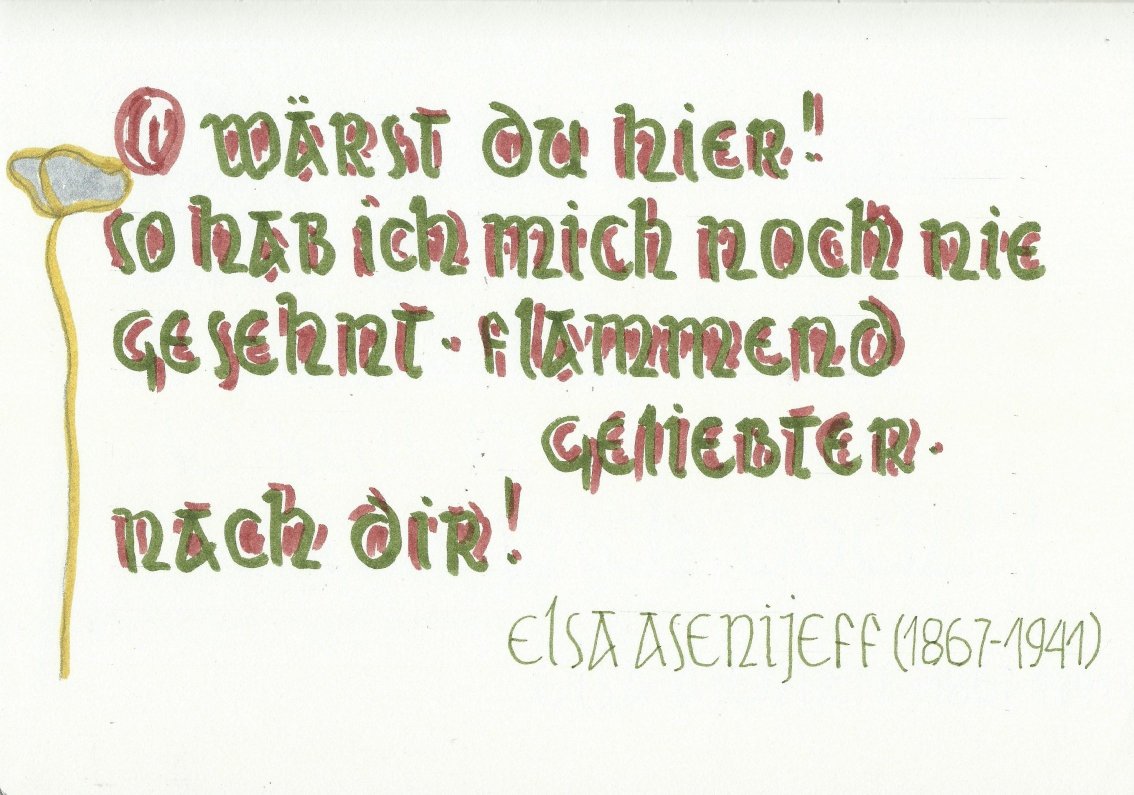 O wärst du hier!
So hab ich mich noch nie
gesehnt · flammend
geliebter ·
nach dir!
Elsa Asenijeff (1867-1941)